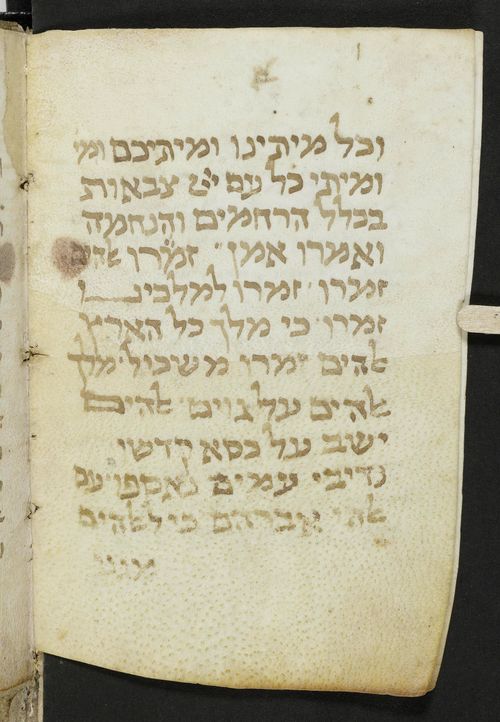 וכל מיתינו ומיתיכם ומי
ומיתי כל עם יי צבאות
בכלל הרחמים והנחמה
ואמרו אמן זמרו אלהים
זמרו זמרו למלכינו
זמרו כי מלך כל הארץ
אלהים זמרו משכיל מלך
אלהים על גוים אלהים
ישב על כסא קדשו
נדיבי עמים נאספו עם
אלהי אברהם כי לאלהים
מגני